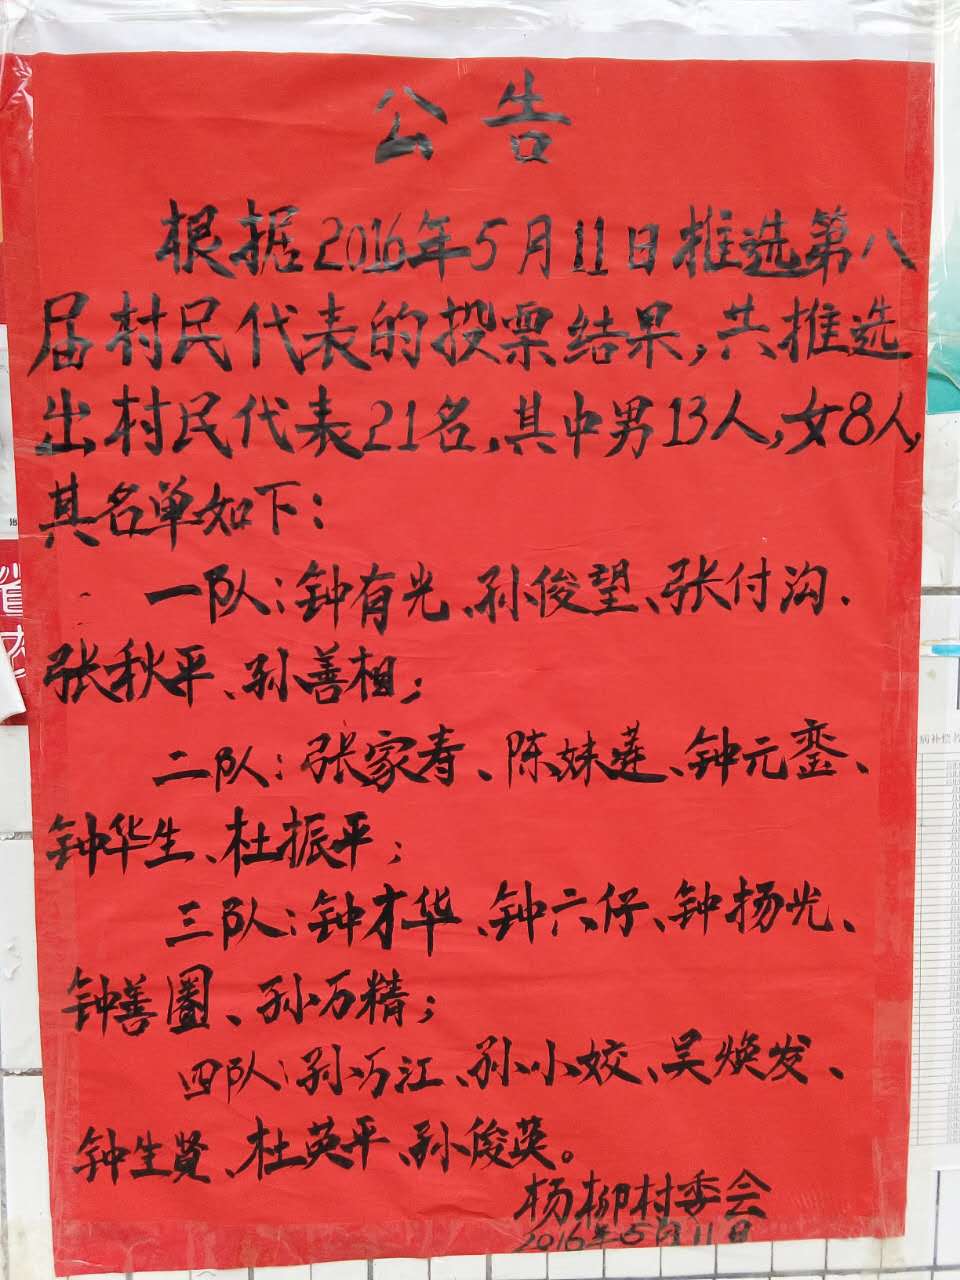 公告
根据2016年5月11日推选第八
届村民代表的投票结果,共推选
出村民代表21名,其中男13人,女8人,
其名单如下:
一队:钟有光、孙俊望、张付沟.
张秋平、孙善相;
二队:张家寿、陈妹莲、钟元銮、
钟华生、杜振平;
三队:钟才华、钟六仔、钟扬光、
钟善圈、孙万精;
四队:孙万江、孙小姣、吴焕发、
钟生贤、杜英平、孙俊英。
杨柳村委会
2016年5月11日
病补偿